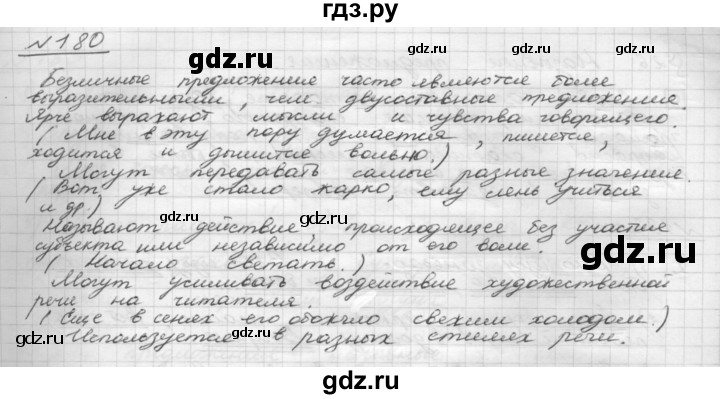 гдз.ру
№180
gdz.ru gdz.ru
Безличные предложения часто являются более
выразительными, чем двусоставные предложения.
Ярче выражают мысли и чувства говорящего.
gdz.ru gdz.ru
(Мне в эту пору думается, пишется,
ходится и дышится вольно.)
Могут передавать самые разные значения.
gdz.ru gdz.ru
(Вот уже стало жарко, ему лень учиться
и др.)
Называют действие, происходящее без участия
субъекта или независимо от его воли.
gdz.ru gdz.ru
(Начало светать.)
Могут усиливать воздействие художественной
речи на читателя.
(Еще в сенях его обожгло свежим холодом.)
gdz.ru gdz.ru
Используется в разных стилях речи.
gdz.ru